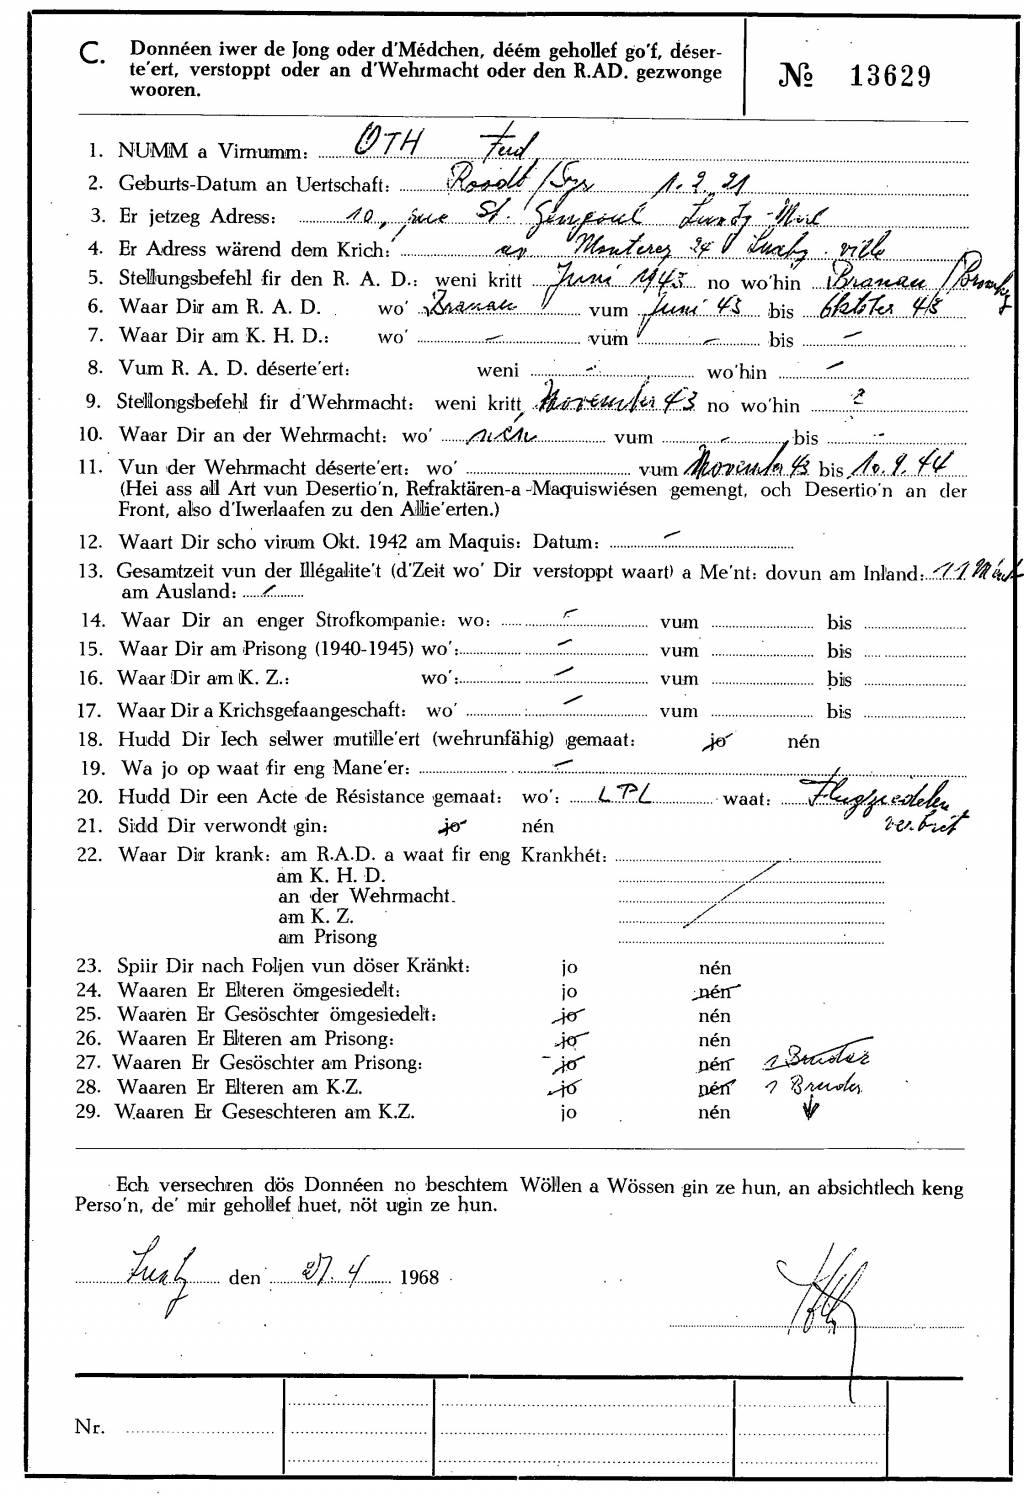 C. Donnéen iwer de Jong oder d'Médchen, déém gehollef go'f, déser-
te'ert, verstoppt oder an d'Wehrmacht oder den R.AD. gezwonge
wooren.
№ 13629
1. NUMM a Virnumm: OTH Ferd
2. Geburts-Datum an Uertschaft: Roodt/Syr 1.2.21
3. Er jetzeg Adress: 10, rue St. Gengoul Luxbg-Merl
4. Er Adress wärend dem Krich: av Monterey 24 Luxbg-ville
5. Stellungsbefehl fir den R. A. D.: weni kritt Juni 1943 no wo'hin Branau /
6. Waar Dir am R. A. D. wo' Branau vum Juni 43 bis Oktober 43
7. Waar Dir am K. H. D.: wo' - vum - bis -
8. Vum R. A. D. déserte'ert: weni - wo'hin -
9. Stellongsbefehl fir d'Wehrmacht: weni kritt November 43 no wo'hin ?
10. Waar Dir an der Wehrmacht: wo' nén vum - bis -
11. Vun der Wehrmacht déserte'ert: wo' vum November 43 bis 10.9.44
(Hei ass all Art vun Desertio'n, Refraktären-a-Maquiswiésen gemengt, och Desertio'n an der
Front, also d'Iwerlaafen zu den Allie'erten.)
12. Waart Dir scho virum Okt. 1942 am Maquis: Datum: -
13. Gesamtzeit vun der Illégalite't (d'Zeit wo' Dir verstoppt waart) a Me'nt: dovun am Inland: 11 Ment
am Ausland: -
14. Waar Dir an enger Strofkompanie: wo: - vum bis
15. Waar Dir am Prisong (1940-1945) wo': - vum bis
16. Waar Dir am K. Z.: wo': - vum bis
17. Waar Dir a Krichsgefaangeschaft: wo' - vum bis
18. Hudd Dir Iech selwer mutille'ert (wehrunfähig) gemaat: jo nén
19. Wa jo op waat fir eng Mane'er: -
20. Hudd Dir een Acte de Résistance gemaat: wo': LPL waat: Flugziedelen
verbret
21. Sidd Dir verwondt gin: jo nén
22. Waar Dir krank: am R.A.D. a waat fir eng Krankhét:
am K. H. D.
an der Wehrmacht.
am K. Z.
am Prisong
23. Spiir Dir nach Foljen vun döser Kränkt: jo nén
24. Waaren Er Elteren ömgesiedelt: jo nén
25. Waaren Er Gesöschter ömgesiedelt: jo nén
26. Waaren Er Elteren am Prisong: jo nén
27. Waaren Er Gesöschter am Prisong: jo nén 1 Bruder
28. Waaren Er Elteren am K.Z. jo nén 1 Breuder
29. Waaren Er Geseschteren am K.Z. jo nén
Ech versechren dös Donnéen no beschtem Wöllen a Wössen gin ze hun, an absichtlech keng
Perso'n, de' mir gehollef huet, nöt ugin ze hun.
Luxbg den 27. 4 1968
Nr.